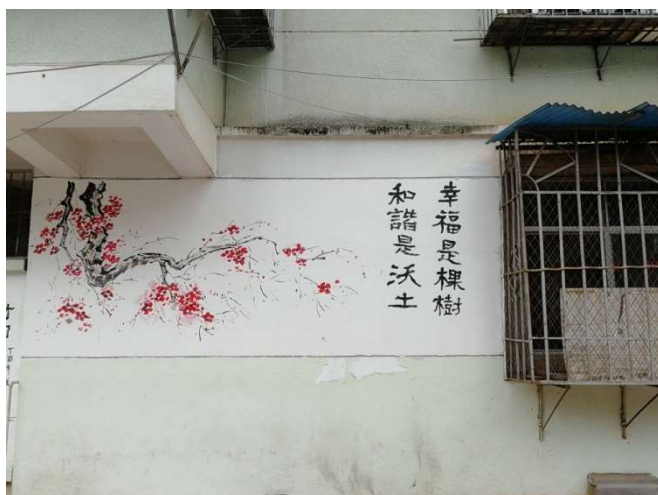 幸福是棵樹
和諧是沃土